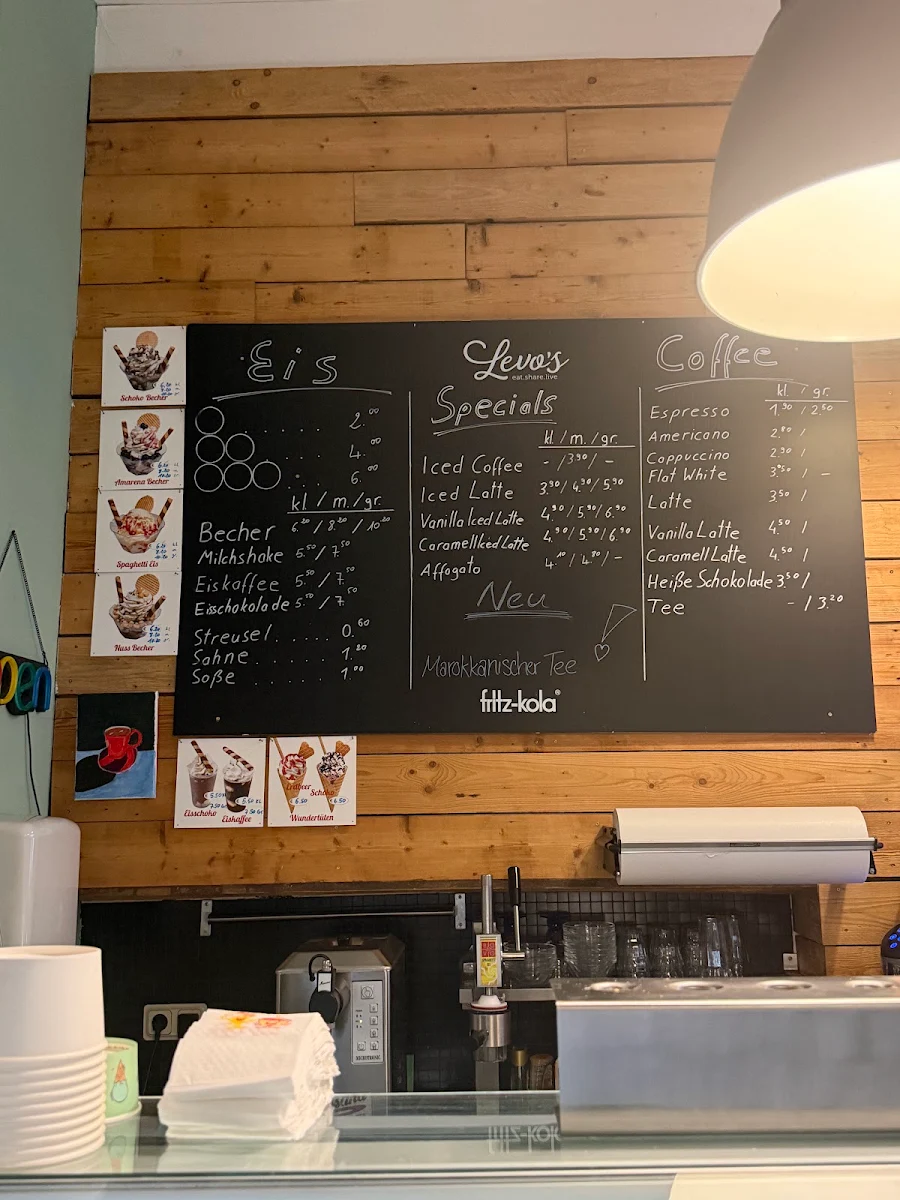 Eis
. . . . . . 2.00
. . . . 4.00
. . 6.00
kl. / m. / gr.
Becher 6.20 / 8.20 / 10.20
Milchshake 5.50 / 7.50
Eiskaffee 5.50 / 7.50
Eisschokolade 5.50 / 7.50
Streusel . . . . . 0.60
Sahne . . . . . . 1.20
Soße . . . . . . 1.00
Levo's
eat.share.live
Specials
kl. / m. / gr.
Iced Coffee - / 3.90 / -
Iced Latte 3.90 / 4.90 / 5.90
Vanilla Iced Latte 4.90 / 5.90 / 6.90
Caramell Iced Latte 4.90 / 5.90 / 6.90
Affogato 4.10 / 4.80 / -
Neu
Marokkanischer Tee
fritz-kola
Coffee
kl. / gr.
Espresso 1.90 / 2.50
Americano 2.80 /
Cappuccino 2.90 /
Flat White 3.50 / -
Latte 3.50 /
Vanilla Latte 4.50 /
Caramell Latte 4.50 /
Heiße Schokolade 3.50 /
Tee - / 3.20
Schoko Becher
Amarena Becher
Spaghetti Eis
Nuss Becher
open
Eisschoko
Eiskaffee
Erdbeer
Schoko
6.50
6.50
Wundertüten